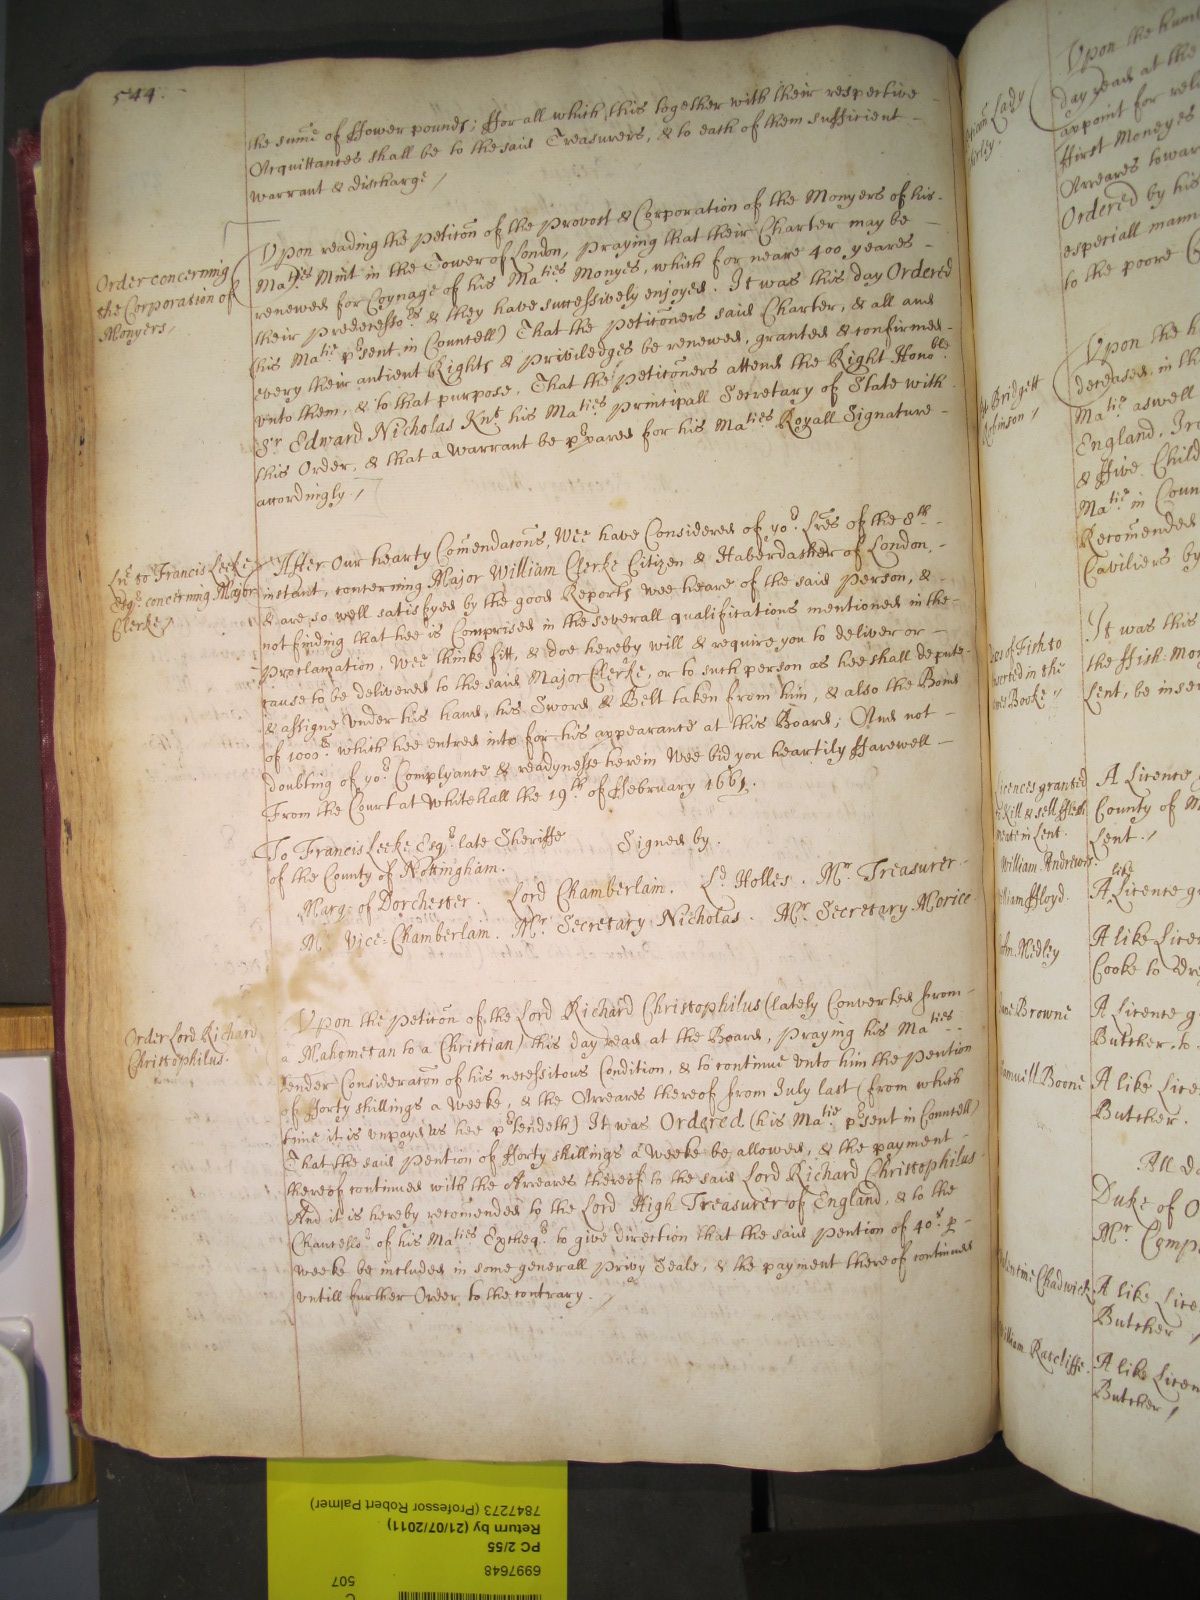 544.
the sume of ffower pounds; ffor all which this together with their respective
Acquittances shall be to the said Treasurers, & to each of them sufficient
warrant & discharge,
Order concerning
the Corporation of
Monyers,
Upon reading the Peticõn of the Provost & Corporation of the Monyers of his
Ma.ties Mint in the Tower of London, praying that their Charter may be
renewed for Coynage of his Ma.ties Monyes, which for neare 400 yeares
their Predecessors & they have successively enjoyed. It was this day Ordered
(his Ma.tie p̃sent in Councell) That the Peticõners said Charter, & all and
every their antient Rights & Priviledges be renewed, granted & confirmed
vnto them, & to that purpose, That the Peticõners attend the Right Hono.ble
Sr. Edward Nicholas Knt. his Ma.ties Principall Secretary of State with
this Order, & that a warrant be p̃pared for his Ma.ties Royall Signature
accordingly.
Lr̃e to Francis Leeke
Esqr. concerning Major
Clerke,
After Our hearty Com̃endacõns, Wee have Considered of yor. Lr̃es of the 8th
instant, concerning Major William Clerke Citizen & Haberdasher of London,
& are so well satisfyed by the good Reports wee heare of the said person, &
not finding that hee is Comprised in the severall qualifications mentioned in the
Proclamation, Wee thinke fitt, & doe hereby will & require you to deliver or
cause to be delivered to the said Major Clerke, or to such person as hee shall depute
& assigne vnder his hand, his Sword & Belt taken from him, & also the Bond
of 1000£. which hee entred into for his appearance at this Board; And not
doubting of yor. Complyance & readynesse herein Wee bid you heartily ffarewell
From the Court at Whitehall the 19th of ffebruary 1661.
To Francis Leeke Esqr. late Sheriffe
of the County of Nottingham.
Signed by.
Marq: of Dorchester. Lord Chamberlain. Ld. Holles. Mr. Treasurer
Mr. Vice-Chamberlain. Mr. Secretary Nicholas. Mr. Secretary Morice
Order Lord Richard
Christophilus.
Upon the Peticõn of the Lord Richard Christophilus (lately Converted from
a Mahometan to a Christian) this day read at the Board, praying his Ma.ties
tender Consideracõn of his necessitous Condition, & to continue vnto him the Pention
of fforty shillings a Weeke, & the Arreares thereof from July last (from which
time it is vnpayd as hee p̃tendeth) It was Ordered (his Ma.tie p̃sent in Councell)
That the said Pention of fforty shillings a Weeke be allowed, & the payment
thereof continued with the Arreares thereof to the said Lord Richard Christophilus
And it is hereby recom̃ended to the Lord High Treasurer of England, & to the
Chancellor of his Ma.ties Excheqr. to give direction that the said Pention of 40s. p̱
weeke be included in some generall Privy Seale, & the payment thereof continued
vntill further Order to the contrary.
Upon the hum
day read at the
appoint for reli
ffirst Moneyes
Arreares towar
Ordered by his
especiall mann
to the poore C
Bridgett
Upon the h
deceased, in th
Ma.tie aswell
England, Ire
& ffive Child
Ma.tie in Coun
Recom̃ended
Caviliers by
of Fish to
in the
Booke
It was this
the ffish-Mon
Lent, be inser
Licences granted
to kill & sell fflesh
meate in Lent.
William Andrewes.
A Licence
County of M
Lent.
lliam ffloyd.
like
A Licence g
Medley
A like Licen
Cooke to dre
Browne
A Licence g
Butcher, to
muell Boone
A like Lice
Butcher.
All da
Duke of O
Mr. Comp
Chadwick
A like Lice
Butcher
William Ratcliffe.
A like Licen
Butcher
7847273 (Professor Robert Palmer)
Return by (21/07/2011)
PC 2/55
6997648
507
C